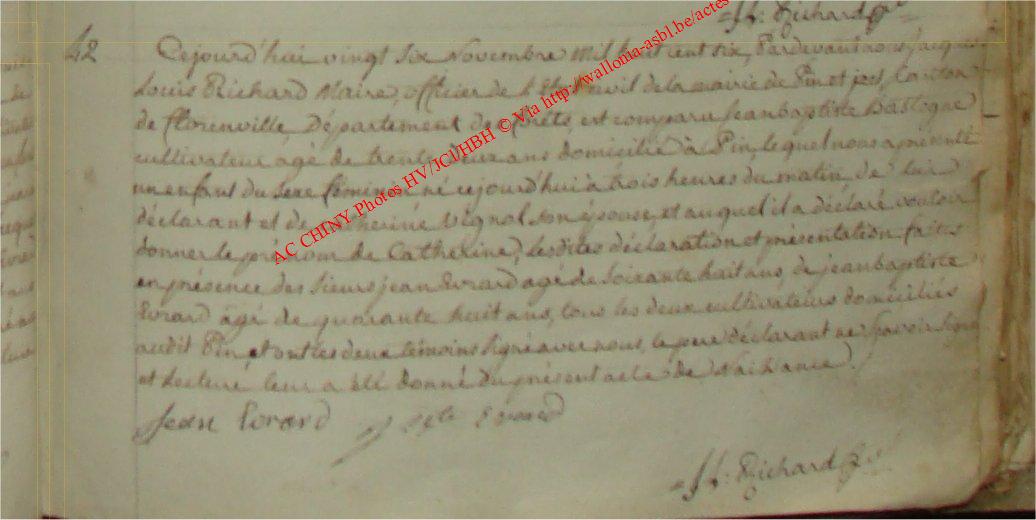 =JL: Richard
42
Cejourd'hui vingt six Novembre Mil huit cent six, Pardevant nous jacque
Louis Richard Maire, officier de l'État Civil de la mairie de Pin et jzel, Canton
de florenville, Département des forêts, est comparu Jeanbaptiste Bastogne
cultivateur agé de trente deux ans domicilié à Pin, lequel nous a présenté
un enfant du sexe féminin né cejourd'hui à trois heures du matin de lui
déclarant et de Catherine Vignol son épouse, et auquel il a déclaré vouloir
donner le prénom de Catherine, lesdites déclaration et présentation faites
en présence des sieurs jean Evrard agé de soixante huit ans, de jeanbaptiste
Evrard agé de quarante huit ans, tous les deux cultivateurs domiciliés
audit Pin, et ont les deux témoins signé avec nous, le pere déclarant ne savoir signé
et lecture leur a été donné du présent acte de Naissance.
Jean Evrard
Evrard
JL: Richard
AC CHINY Photos HV/JCI/HBH © Via http://wallonia-asbl.be/actes